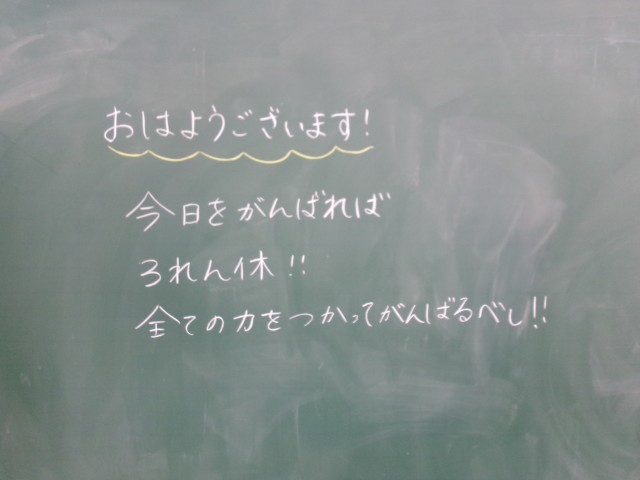 おはようございます!
今日をがんばれば
3れん休!!
全ての力をつかってがんばるべし!!